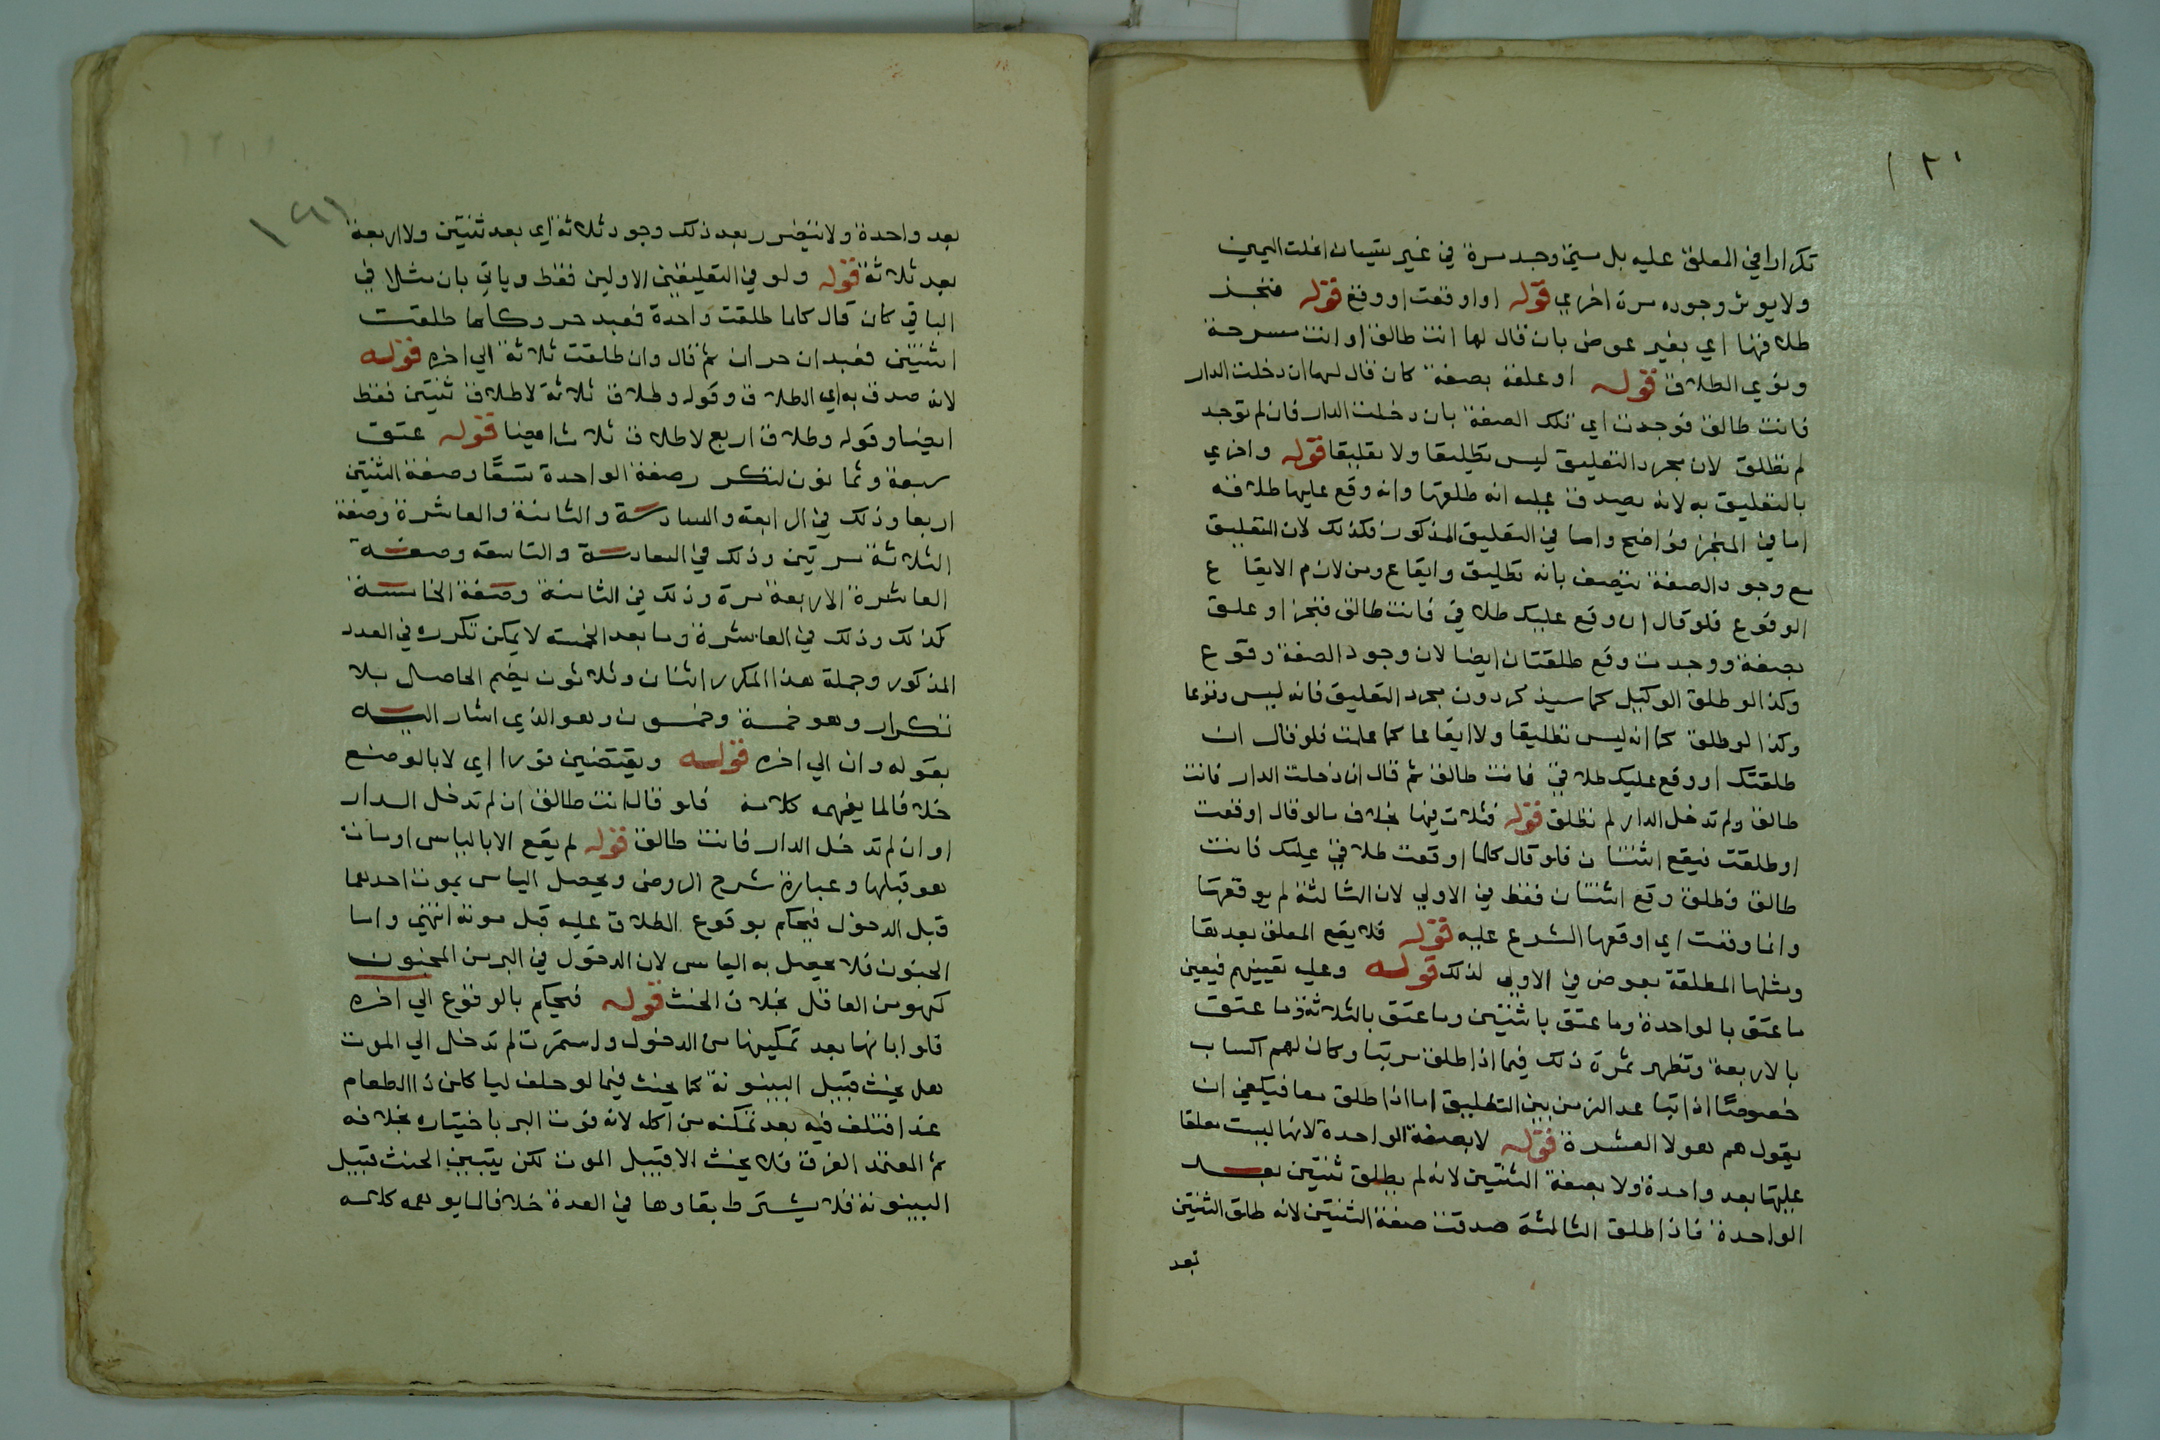 ١٢٠
تكرارا في المعلق عليه بل متي وجد مرة في غير نسيان انحلت اليمين
ولا يوثر وجوده مرة اخري قوله او اوقعت او وقع قوله فنجز
طلاقها اي بغير عوض بان قال لها انت طالق او انت مسرحة
ونوي الطلاق قوله او علقه بصفة كان قال لها ان دخلت الدار
فانت طالق فوجدت اي تلك الصفة بان دخلت الدار فان لم توجد
لم تطلق لان مجرد التعليق ليس تطليقا ولا تعليقا قوله واخري
بالتعليق به لانه يصدق عليه انه طلقها وانه وقع عليها طلاقه
اما في المنجز فواضح واما في التعليق المذكور فكذلك لان التعليق
مع وجود الصفة يتصف بانه تطليق وايقاع ومن لازم الايقاع
الوقوع فلو قال ان وقع عليك طلاقي فانت طالق فنجز او علق
بصفة ووجدت وقع طلقتان ايضا لان وجود الصفة وقوع
وكذا لو طلق الوكيل كما سيذكر دون مجرد التعليق فانه ليس وقوعا
وكذا لو طلق كما انه ليس تطليقا ولا ايقاعا كما علمت فلو قال ان
طلقتك او وقع عليك طلاقي فانت طالق ثم قال ان دخلت الدار فانت
طالق ولم تدخل الدار لم تطلق قوله فثلاث فيها بخلاف ما لو قال اوقعت
او طلقت فيقع اثنتان فلو قال كلما اوقعت طلاقي عليك فانت
طالق فطلق وقع اثنتان فقط في الاولي لان الثالثة لم يوقعها
وانما وقعت اي اوقعها الشرع عليه قوله فلا يقع المعلق بعدها
ومثلها المطلقة بعوض في الاولي لذلك قوله وعليه تعيينهم فيعين
ما عتق بالواحدة وما عتق باثنتين وما عتق بالثلاثة وما عتق
بالاربعة وتظهر ثمرة ذلك فيما اذا طلق مرتبا وكان لهم اكساب
خصوصا اذا تباعد الزمن بين التطليق اما اذا طلق معا فيكفي ان
يقول هم هولا العشرة قوله لا بصفة الواحدة لانها ليست معلقا
عليها بعد واحدة ولا بصفة الثنتين لانه لم يطلق ثنتين بعد
الواحدة فاذا طلق الثالثة صدقت صفة الثنتين لانه طلق الثنتين
بعد
١٢١
بعد واحدة ولا يتصور بعد ذلك وجود ثلاثة اي بعد ثنتين ولا اربعة
بعد ثلاثة قوله ولو في التعليقين الاولين فقط وياتي بان مثلا في
الباقي كان قال كلما طلقت واحدة فعبد حر وكلما طلقت
اثنتين فعبدان حران ثم قال وان طلقت ثلاثة الي اخره قوله
لانه صدق به اي الطلاق وقوله وطلاق ثلاثة لا طلاق ثنتين فقط
ايضا وقوله وطلاق اربع لا طلاق ثلاث ايضا قوله عتق
سبعة وثمانون لتكرر صفة الواحدة تسعا وصفة الثنتين
اربعا وذلك في الرابعة والسادسة والثامنة والعاشرة وصفة
الثلاثة مرتين وذلك في السادسة والتاسعة وصفة
العاشرة الاربعة مرة وذلك في الثامنة وصفة الخامسة
كذلك وذلك في العاشرة وما بعد الخمسة لا يمكن تكرره في العدد
المذكور وجملة هذا المكرر اثنان وثلاثون يضم الحاصل بلا
تكرار وهو خمسة وخمسون وهو الذي اشار اليه
بقوله وان الي اخره قوله ويقتضين فورا اي لا بالوضع
خلافا لما يفهمه كلامه فلو قال انت طالق ان لم تدخل الدار
او ان لم تدخل الدار فانت طالق قوله لم يقع الا بالياس اومات
هو قبلها وعبارة شرح الروض ويحصل الياس بموت احدهما
قبل الدخول فيحكم بوقوع الطلاق عليه قبل موته انتهي واما
الجنون فلا يحصل به الياس لان الدخول في البر من المجنون
كهو من العاقل بخلاف الحنث قوله فيحكم بالوقوع الي اخره
فلو ابانها بعد تمكينها من الدخول واستمرت لم تدخل الي الموت
هل يحنث قبيل البينونة كما يحنث فيما لو حلف لياكلن ذا الطعام
غدا فتلف فيه بعد تمكنه من اكله لانه فوت البر باختياره بخلافه
ثم المعتمد الفرق فلا يحنث الا قبيل الموت لكن يتبين الحنث قبيل
البينونة فلا يشترط بقاوها في العدة خلافا لما يوهمه كلامه